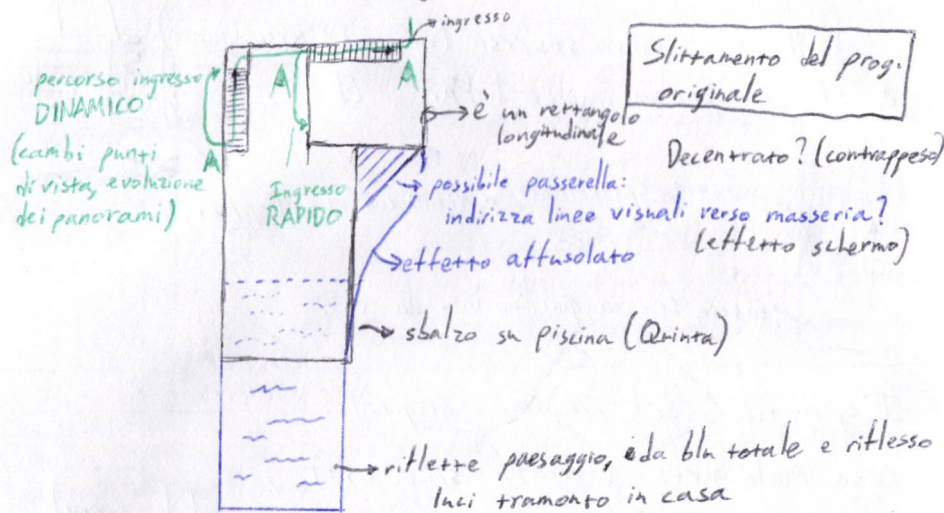 ingresso
Slittamento del prog.
originale
percorso ingresso
DINAMICO
(cambi punti
di vista, evoluzione
dei panorami)
A
A
A
Ingresso
RAPIDO
è un rettangolo
longitudinale
Decentrato? (contrappeso)
possibile passerella:
indirizza linee visuali verso masseria?
(effetto schermo)
effetto affusolato
sbalzo su piscina (Quinta)
riflette paesaggio, da blu totale e riflesso
luci tramonto in casa